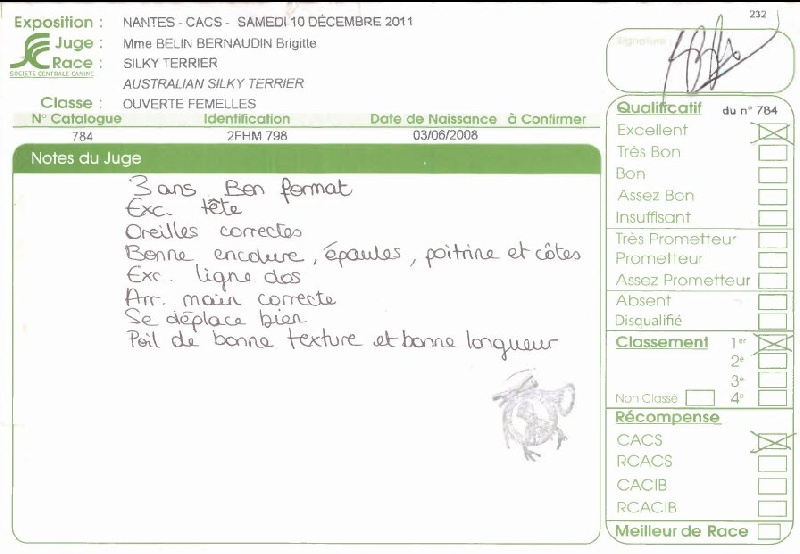 232
Exposition : NANTES - CACS - SAMEDI 10 DÉCEMBRE 2011
Juge : Mme BELIN BERNAUDIN Brigitte
Race : SILKY TERRIER
SOCIÉTÉ CENTRALE CANINE
AUSTRALIAN SILKY TERRIER
Classe : OUVERTE FEMELLES
N° Catalogue Identification Date de Naissance à Confirmer
784 2FHM 798 03/06/2008
Notes du Juge
3 ans Bon format
Exc. tête
Oreilles correctes
Bonne encolure, épaules, poitrine et côtes
Exc. ligne dos
Arr. main correcte
Se déplace bien
Poil de bonne texture et bonne longueur
Signature
Qualificatif du n° 784
Excellent
Très Bon
Bon
Assez Bon
Insuffisant
Très Prometteur
Prometteur
Assez Prometteur
Absent
Disqualifié
Classement 1er
2e
3e
Non Classé 4e
Récompense
CACS
RCACS
CACIB
RCACIB
Meilleur de Race